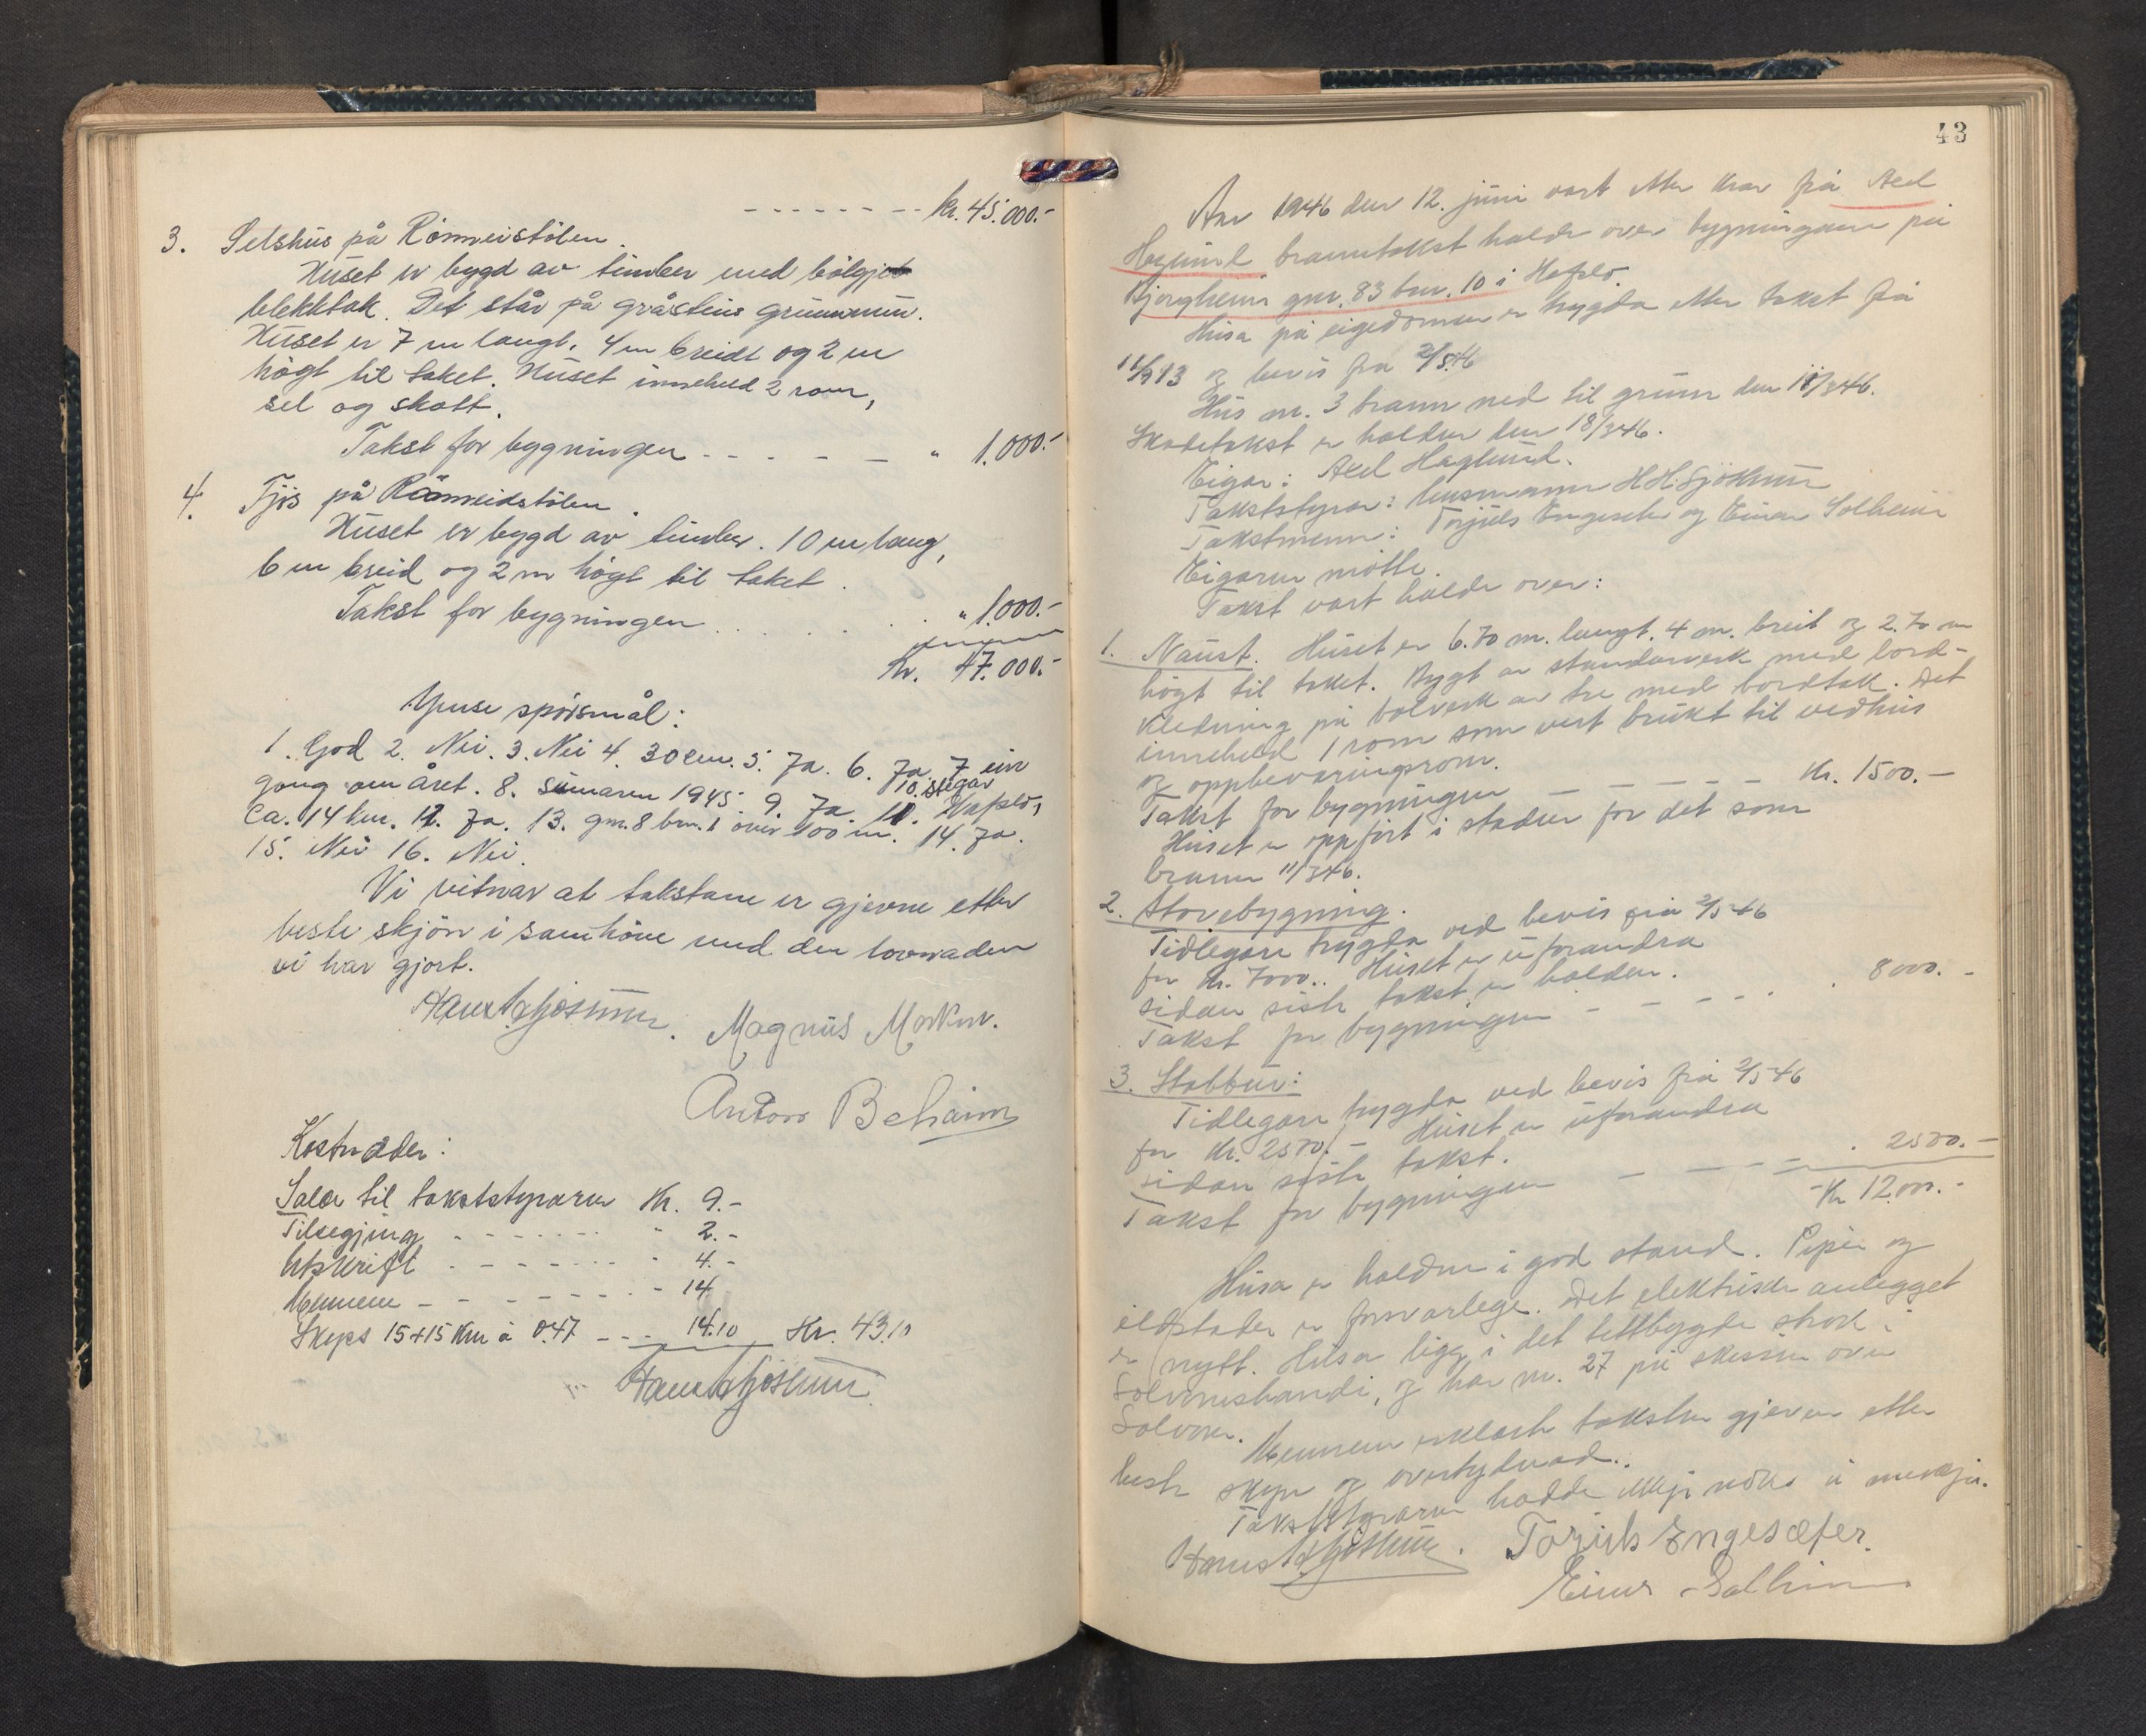 - - - - - - - kr. 45.000.-
3. Selshus på Römeistölen.
Huset er bygd av timber med bölgje
blekktak. Det står på gråsteins grunnmur.
Huset er 7 m langt, 4 m breidt og 2 m
högt til taket. Huset inneheld 2 rom,
sel og skott.
Takst for bygningen - - - - - " 1.000.-
4. Fjös på Römeidstölen.
Huset er bygd av timber. 10 m lang,
6 m breid og 2 m högt til taket.
Takst for bygningen . . . . . . " 1.000.-
Kr. 47.000.-
Ymse spörsmål:
1. God 2. Nei. 3. Nei 4. 30 cm. 5. Ja. 6. Ja. 7 ein
gong om året. 8. Sumaren 1945. 9. Ja. 10. stegar 11. Hafslo,
ca. 14 km. 12. Ja. 13. gnr. 8 bnr. 1 över 100 m. 14. Ja.
15. Nei 16. Nei.
Vi vitnar at takstane er gjevne etter
beste skjön i samhöve med den lovnaden
vi har gjort.
Hans H. Sjöthun. Magnus Morken.
Anton Beheim
Kostnader:
Salær til takststyraren Kr. 9.-
Tilsegjing - - - - - - " 2.-
Utskrift - - - - - - " 4.-
Mennene - - - - - - - 14
Skyss 15+15 km à 0.47 - - - 14.10 Kr. 43.10
Hans H Sjöthun.
43
Aar 1946 den 12. juni vart etter krav frå Axel
Haglund branntakst halde over bygningane på
Bjorgheim gnr. 83 bnr. 10 i Hafslo.
Husa på eigedomen er trygda etter takst frå
og bevis fra 2/5 46
Hus nr. 3 brann ned til grunn den 11/3 46.
Skadetakst er halden den 18/3 46.
Eigar: Axel Haglund.
Takststyrar: lensmann H H. Sjöthun
Takstmenn: Torjuls Engesæter og Einar Solheim
Eigaren mötte.
Takst vart halde over:
1. Naust. Huset er 6.70 m. langt. 4 m. breit og 2.70 m
högt til taket. Bygt av standarverk med bord-
kledning på bolverk av tre med bordtak. Det
inneheld 1 rom som vert brukt til vedhus
og oppbevaringsrom.
Takst for bygningen - - - - - Kr. 1500.-
Huset er oppfört i staden for det som
brann 11/3 46.
2. Storebygning.
Tidlegare trygda ved bevis frå 2/5 46
for kr. 7000.. Huset er uforandra
sidan siste takst er halden.
Takst for bygningen - - - - - . 8000.-
3. Stabbur:
Tidlegare trygda ved bevis frå 2/5 46
for kr. 2500.- Huset er uforandra
sidan siste takst.
Takst for bygningen - - - - - . 2500.-
Kr 12.000.-
Husa er haldne i god stand. Piper og
ildstader er forsvarlege. Det elektriske anlegget
er nytt. Husa ligg i det tettbygde strok i
Solvornstrandi, og har nr. 27 på skissen over
Solvorn.
Mennene erklærte taksten gjeven etter
beste skjön og overtydnad.
Takststyraren hadde ikkje noko å merkja.
Hans H Sjöthun. Torjuls Engesæter.
Einar Solheim